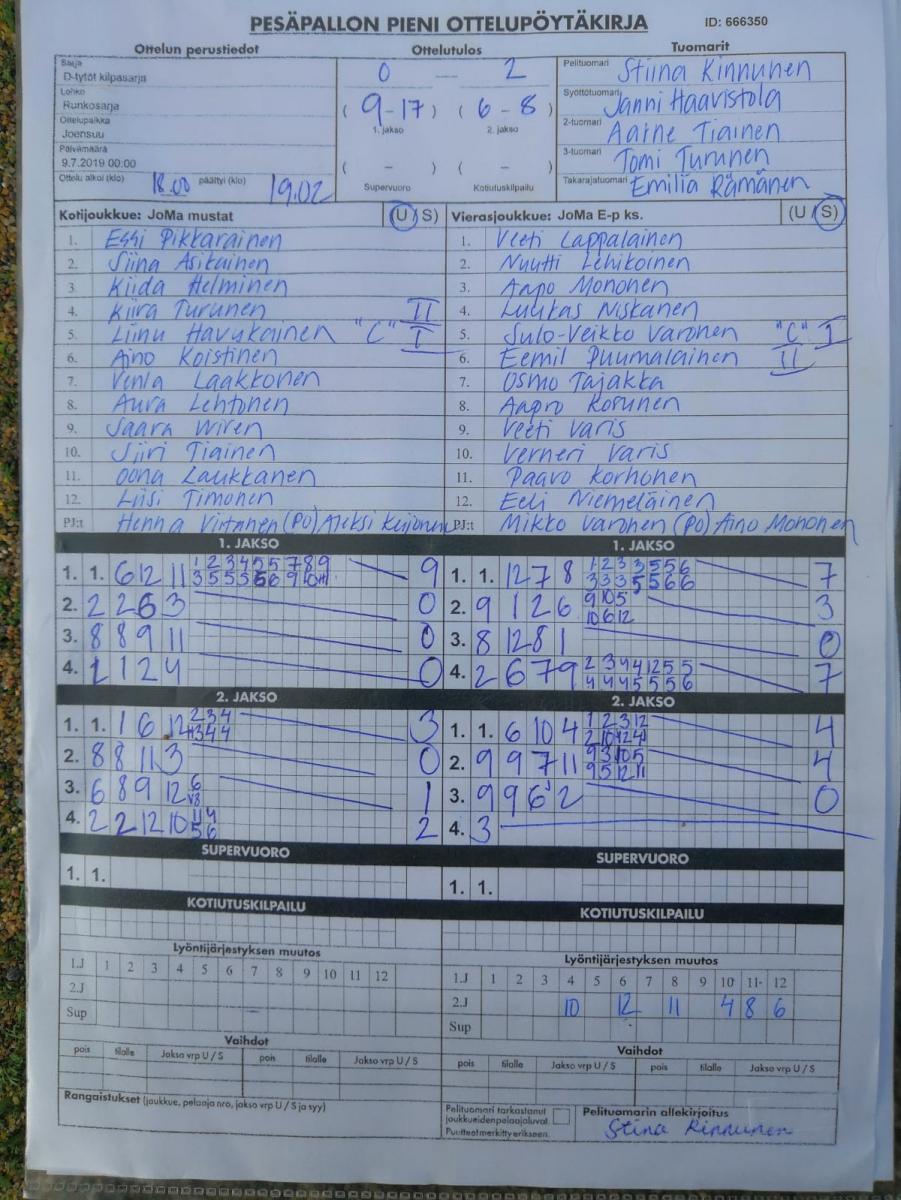 PESÄPALLON PIENI OTTELUPÖYTÄKIRJA ID: 666350
Ottelun perustiedot Ottelutulos Tuomarit
Sarja
D-tytöt kilpasarja
Lohko
Runkosarja
Ottelupaikka
Joensuu
Päivämäärä
9.7.2019 00:00
Ottelu alkoi (klo) 18.00 päättyi (klo) 19.02
0 — 2
( 9-17 ) ( 6-8 )
1. jakso 2. jakso
( - ) ( - )
Supervuoro Kotiutuskilpailu
Pelituomari Stiina Kinnunen
Syöttötuomari Janni Haavistola
2-tuomari Aarne Tiainen
3-tuomari Tomi Turunen
Takarajatuomari Emilia Rämänen
Kotijoukkue: JoMa mustat (U S)
1. Essi Pikkarainen
2. Siina Asikainen
3. Kiida Helminen
4. Kiira Turunen II
5. Liinu Havukainen "C" I
6. Aino Koistinen
7. Venla Laakkonen
8. Aura Lehtonen
9. Saara Wiren
10. Siiri Tiainen
11. Oona Laukkanen
12. Liisi Timonen
PJ:t Henna Virtanen (PO) Aleksi
Vierasjoukkue: JoMa E-p ks. (U S)
1. Veeti Lappalainen
2. Nuutti Lehikoinen
3. Aapo Mononen
4. Luukas Niskanen
5. Sulo-Veikko Varonen "C" I
6. Eemil Puumalainen II
7. Osmo Tajakka
8. Aapro Kosunen
9. Veeti Varis
10. Verneri Varis
11. Paavo Korhonen
12. Eeli Niemeläinen
PJ:t Mikko Varonen (PO) Aino Mononen
1. JAKSO 1. JAKSO
1. 1. 6 12 11 9
2. 2 2 6 3 0
3. 8 8 9 11 0
4. 1 12 4 0
1. 1. 12 7 8 7
2. 9 12 6 9 10 5 10 6 12 3
3. 8 12 8 1 0
4. 2 6 7 9 2 3 4 4 12 5 5 4 4 4 5 5 5 6 7
2. JAKSO 2. JAKSO
1. 1. 1 6 12 2 3 4 3
2. 8 8 11 3 0
3. 6 8 9 12 1
4. 2 2 12 10 2
1. 1. 6 10 4 1 2 3 12 4
2. 9 9 7 11 9 3 10 5 9 5 12 11 4
3. 9 9 6 2 0
4. 3
SUPERVUORO SUPERVUORO
1. 1. 1. 1.
KOTIUTUSKILPAILU KOTIUTUSKILPAILU
Lyöntijärjestyksen muutos Lyöntijärjestyksen muutos
1.J 1 2 3 4 5 6 7 8 9 10 11 12
2.J
Sup
1.J 1 2 3 4 5 6 7 8 9 10 11 12
2.J 10 12 11 4 8 6
Sup
Vaihdot Vaihdot
pois tilalle Jakso vrp U / S pois tilalle Jakso vrp U / S
pois tilalle Jakso vrp U / S pois tilalle Jakso vrp U / S
Rangaistukset (joukkue, pelaaja nro, jakso vrp U / S ja syy)
Pelituomari tarkastanut
joukkueidenpelaajaluvat
Puutteet merkitty erikseen.
Pelituomarin allekirjoitus
Stiina Kinnunen